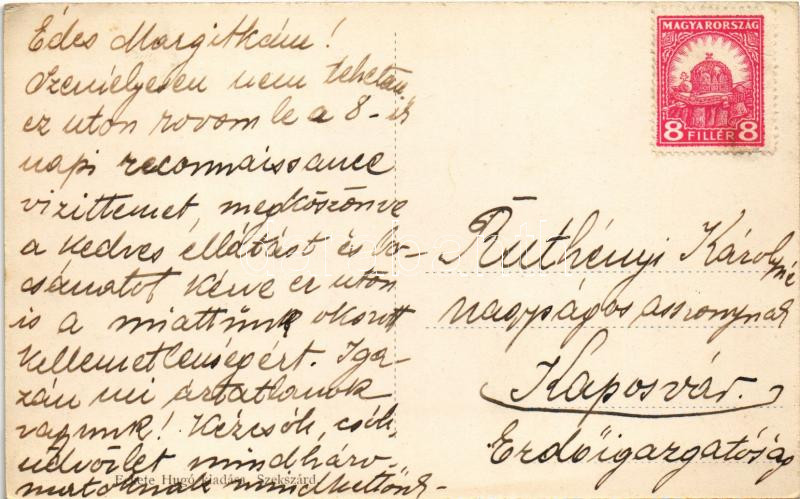 Édes Margitkám!
Személyesen nem tehetem
ez uton rovom le a 8-iki
napi reconnaissance
vizittemet, megköszönve
a kedves ellátást és bo-
csánatot kérve ez uton
is a miattunk okozott
kellemetlenségért. Iga-
zán mi ártatlanok
vagyunk! Kézcsók, csók,
üdvözlet mindhárom
matoknak mindkettőnk-
Fekete Hugó kiadása, Szekszárd
MAGYARORSZÁG
8 FILLÉR 8
Ruthényi Károlyné
nagyságos asszonynak
Kaposvár.
Erdőigazgatóság